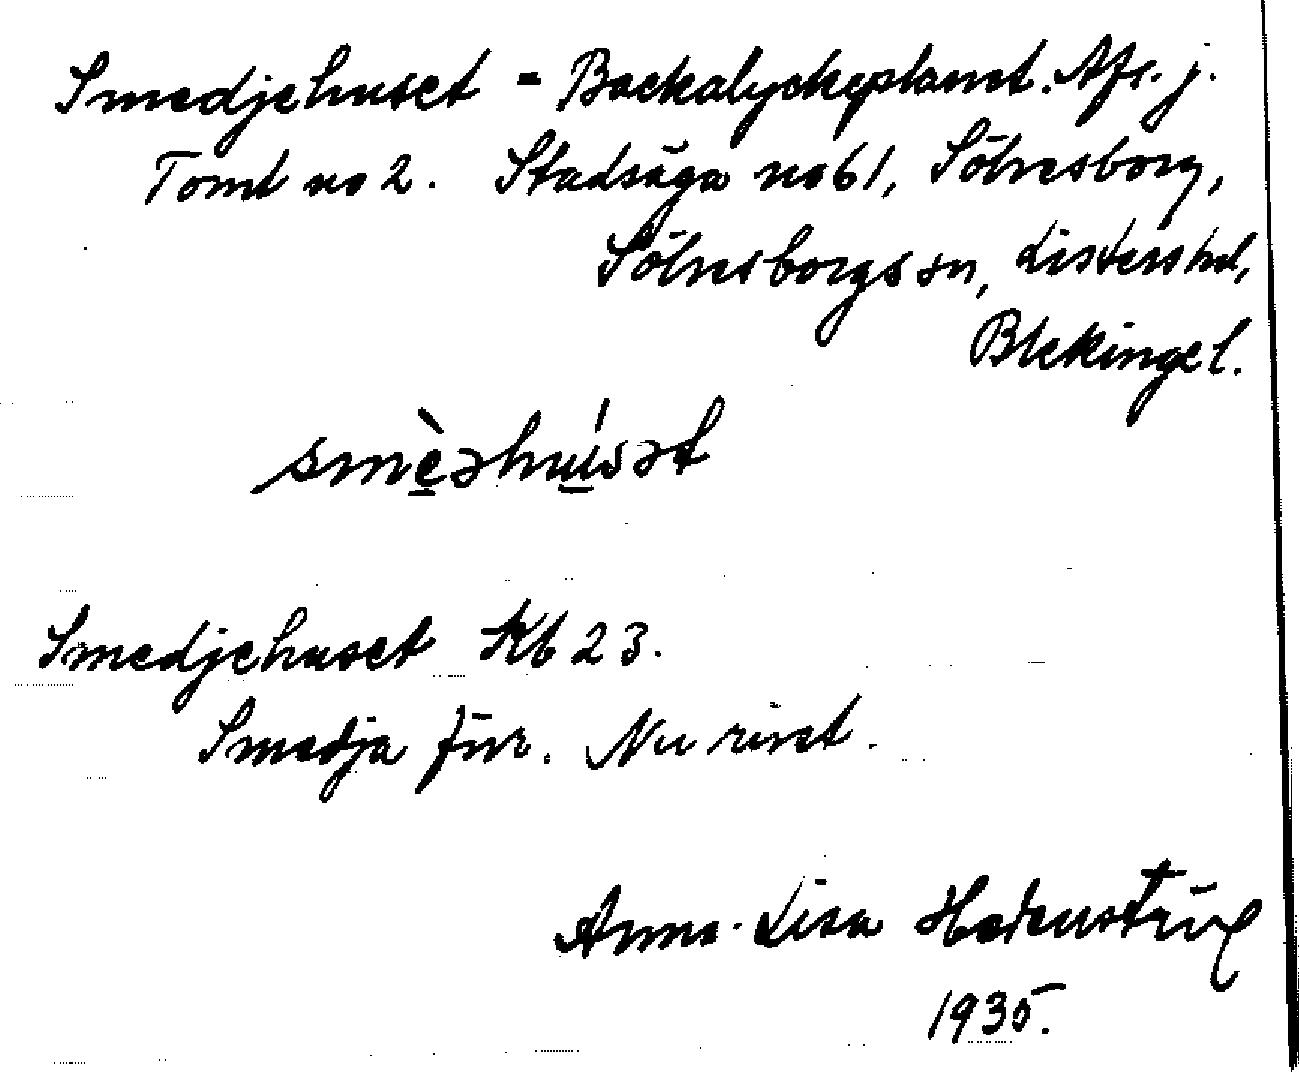 Smedjehuset = Backalyckeplant. Afs. j.
Tomt no 2. Stadsäga no 61, Sölvesborg,
Sölvesborgs sn, Listers hd,
Blekinge l.
smè̱əhú̱sət
Smedjehuset Kb 23.
Smedja förr. Nu rivet.
Anna-Lisa
1935.